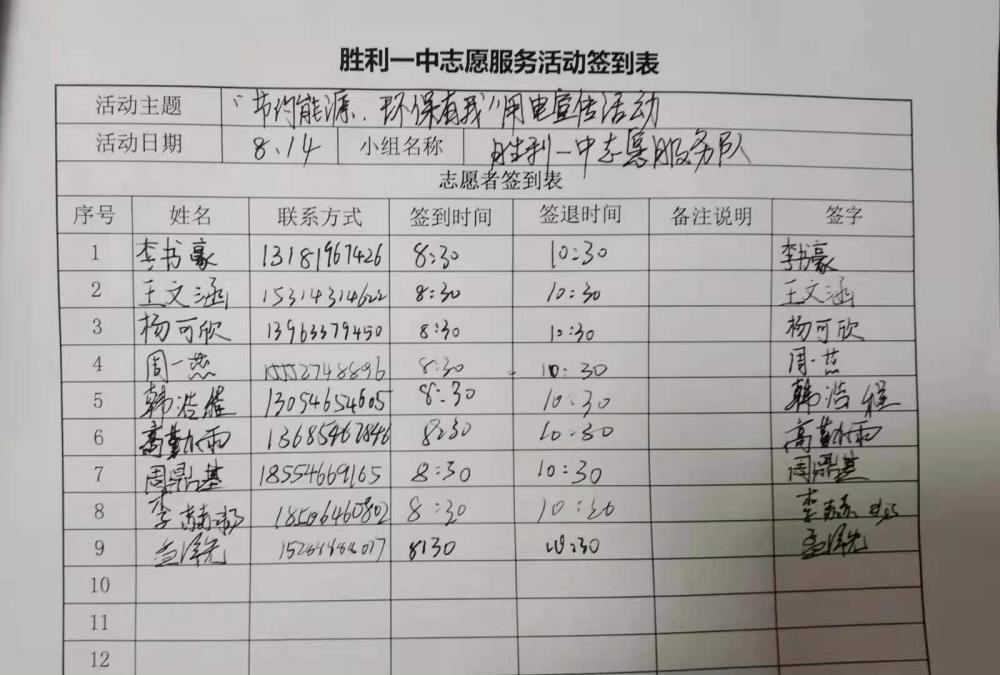 胜利一中志愿服务活动签到表
活动主题 “节约能源、环保有我”用电宣传活动
活动日期 8.14 小组名称 胜利一中志愿服务队
志愿者签到表
序号 姓名 联系方式 签到时间 签退时间 备注说明 签字
1 李书豪 13181967426 8:30 10:30 李书豪
2 王文涵 15314314622 8:30 10:30 王文涵
3 杨可欣 13963379450 8:30 10:30 杨可欣
4 周一燕 15552748896 8:30 10:30 周一燕
5 韩浩 13054654605 8:30 10:30 韩浩
6 高勤雨 13685467846 8:30 10:30 高勤雨
7 周鼎基 18554669165 8:30 10:30 周鼎基
8 李赫 18506460802 8:30 10:30 李赫
9 孟泽 8:30 10:30 孟泽
10
11
12